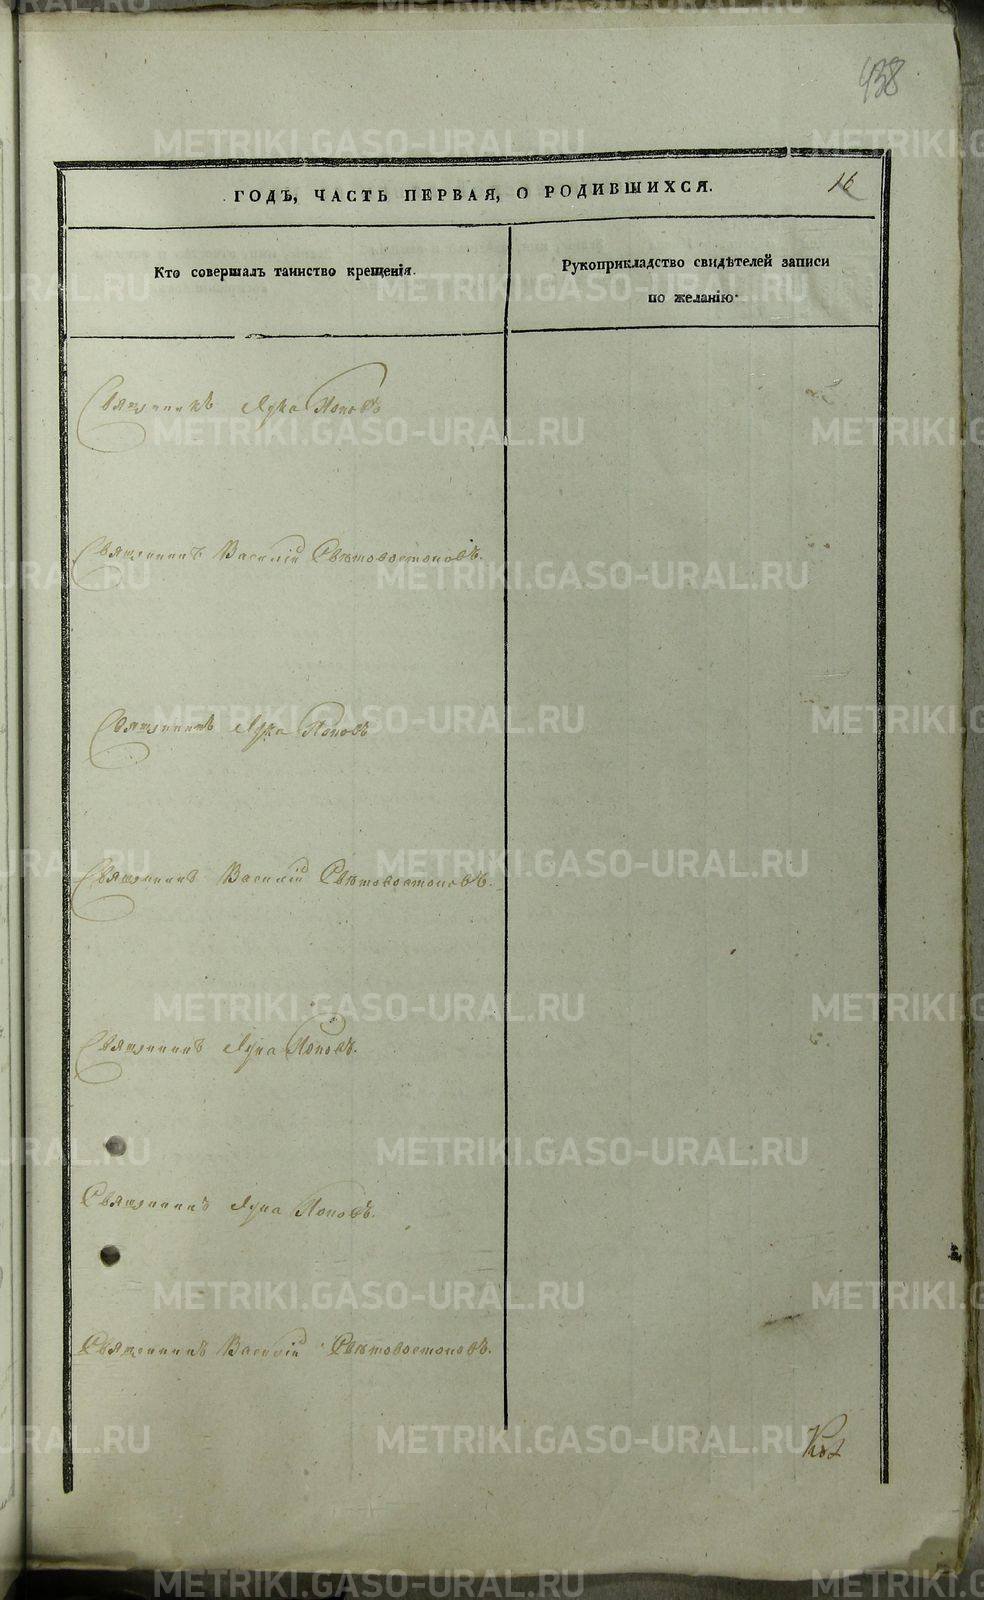 438
ГОДЪ, ЧАСТЬ ПЕРВАЯ, О РОДИВШИХСЯ.
16
Кто совершалъ таинство крещенія.
Рукоприкладство свидѣтелей записи
по желанію.
Священникъ Лука Поповъ
Священникъ Василій Свѣтовостоковъ.
Священникъ Лука Поповъ
Священникъ Василій Свѣтовостоковъ.
Священникъ Лука Поповъ.
Священникъ Лука Поповъ.
Священникъ Василій Свѣтовостоковъ.
METRIKI.GASO-URAL.RU